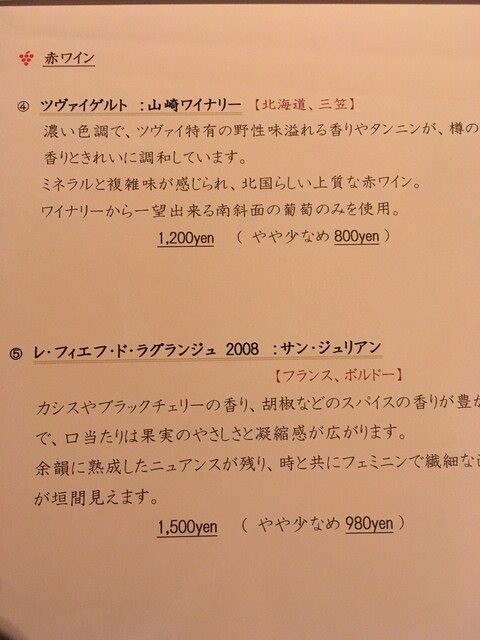 赤ワイン
④ ツヴァイゲルト :山崎ワイナリー 【北海道、三笠】
濃い色調で、ツヴァイ特有の野性味溢れる香りやタンニンが、樽の
香りときれいに調和しています。
ミネラルと複雑味が感じられ、北国らしい上質な赤ワイン。
ワイナリーから一望出来る南斜面の葡萄のみを使用。
1,200yen ( やや少なめ 800yen )
⑤ レ・フィエフ・ド・ラグランジュ 2008 :サン・ジュリアン
【フランス、ボルドー】
カシスやブラックチェリーの香り、胡椒などのスパイスの香りが豊か
で、口当たりは果実のやさしさと凝縮感が広がります。
余韻に熟成したニュアンスが残り、時と共にフェミニンで繊細な
が垣間見えます。
1,500yen ( やや少なめ 980yen )